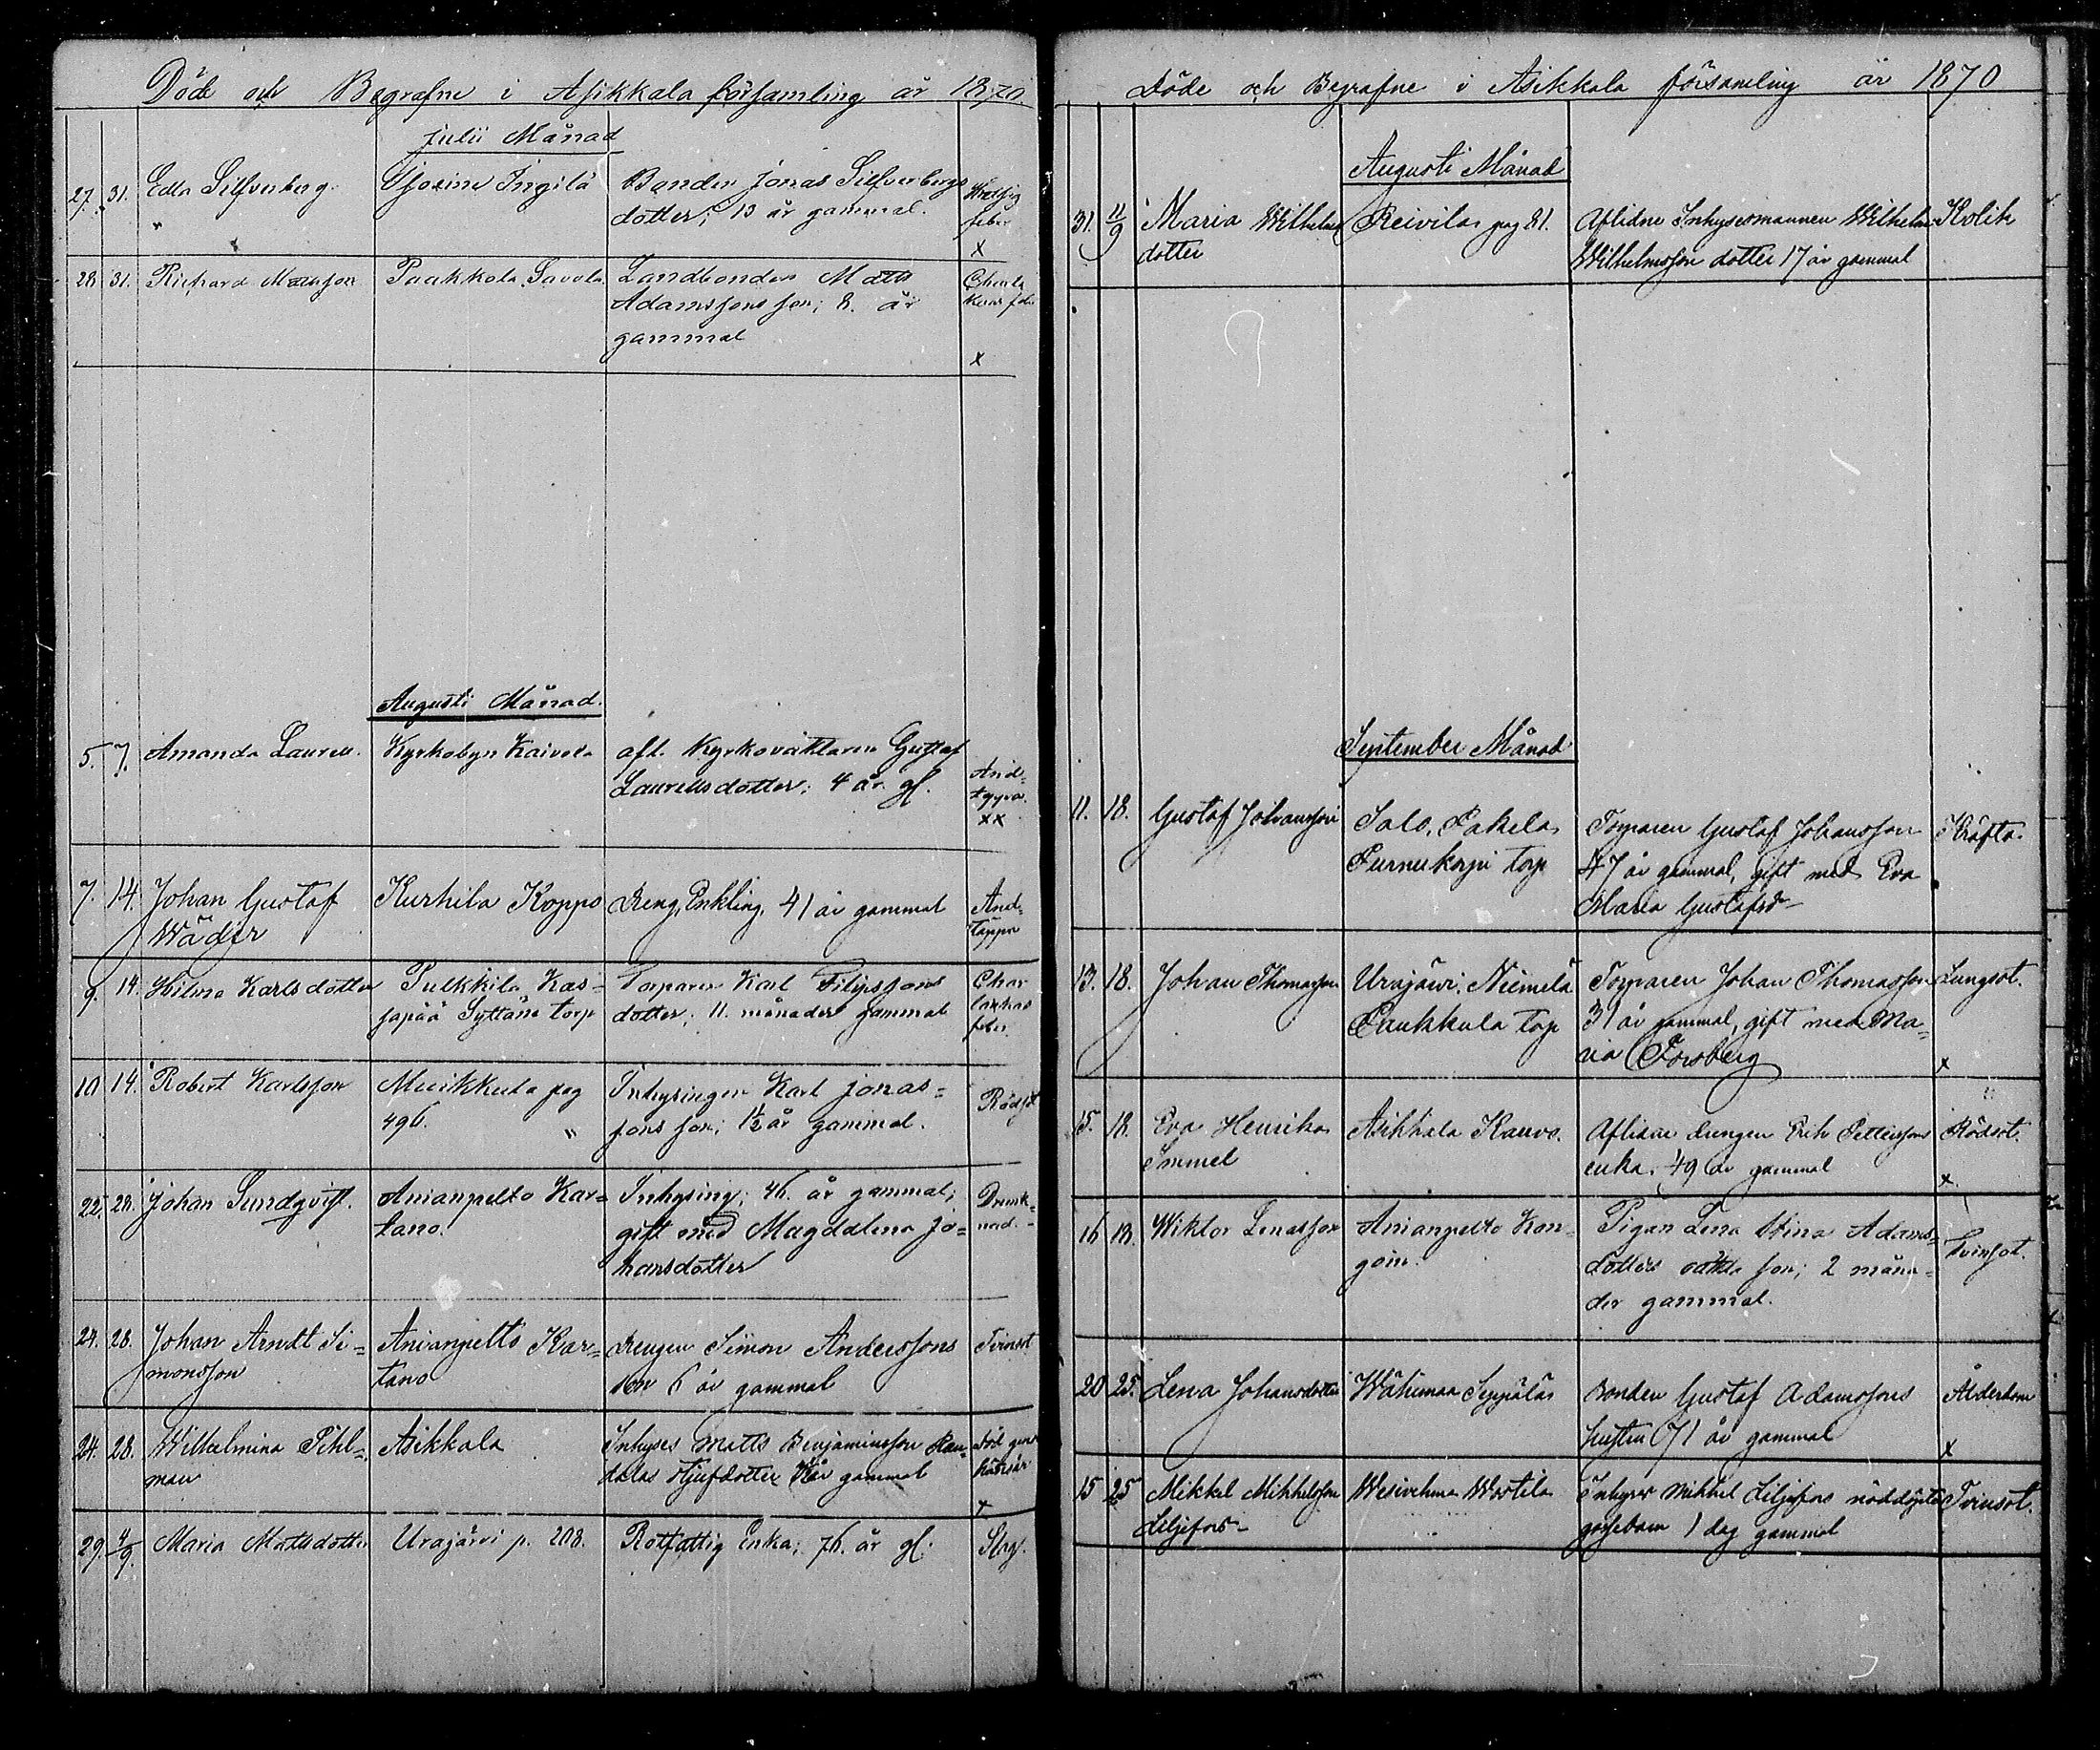 Döde och Begrafne i Asikkala församling år 1870
Julii Månad
27. 31. Edla Silfverberg. Ingilä Bonden Jonas Silfverbergs
dotter; 13 år gammal. feber
x
28 31. Richard Mattsson Paakkola Savola Landbonden Matts
Adamssons son; 8. år
gammal
x
Augusti Månad.
5. 7. Amanda Laurell. Kyrkobyn Kaivola afl. Kyrkovaktaren Gustaf
Laurells dotter; 4 år gl. And-
xx
7. 14. Johan Gustaf Kurhila Koppo Dreng, Enkling, 41 år gammal And-
täppa
9. 14. Hilma Karlsdotter Pulkkila Kas- Torparen Karl Filipssons Char-
japää Syttänä torp dotter; 11. månader gammal lakans
feber
10 14. Robert Karlsson Muikkula pag Inhysingen Karl Jonas- Rödsot
496. " sons son; 1½ år gammal.
22. 28. Johan Sundqvist. Anianpelto Kar- Inhysing; 46. år gammal; Drunk-
tano. gift med Magdalena Jo- nad.
hansdotter
24. 28. Johan Arndt Si- Anianpelto Kar- Drengen Simon Anderssons Tvinsot
monsson tano son 6 år gammal
24. 28. Wilhelmina Pihl- Asikkala Inhyses Matts Benjaminsson
man stjufdotter år gammal
x
29. 4/9. Maria Mattsdotter Urajärvi p. 208. Rotfattig Enka; 76. år gl. Slag.
Döde och Begrafne i Asikkala församling år 1870
Augusti Månad
31. 11/9 Maria Wilhelms Reivila pag 81. Aflidne Inhysesmannen Wilhelm Kolik
dotter Wilhelmsson dotter 17 år gammal
September Månad
11. 18. Gustaf Johansson Salo, Pakela Torparen Gustaf Johansson Kräfta.
torp 47 år gammal, gift med Eva
Maria Gustafsd
13. 18. Johan Thomasson Urajärvi Niemelä Torparen Johan Thomasson Lungsot.
Paukkula torp 31 år gammal, gift med Ma-
ria Forsberg
x
15. 18. Eva Henrika Asikkala Kauvo. Aflidne drengen Erik Petterssons Rödsot.
Immel enka. 49 år gammal
x
16 18. Wiktor Lenasson Anianpelto Kon- Pigan Lena Stina Adams- Tvinsot.
goin. dotters oäkta son; 2 måna-
der gammal.
20 25. Lena Johansdotter Wähimaa Seppälä Bonden Gustaf Adamssons Ålderdom
hustru 71 år gammal
x
15 25 Mikkel Mikkelsson Wesivehma Wostila Inhyses Mikkel Liljefors nöddöpta Tvinsot.
Liljefors gossebarn 1 dag gammal